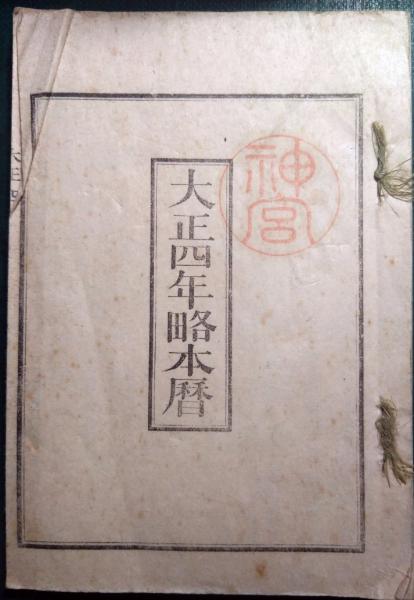 神宮
大正四年略本暦